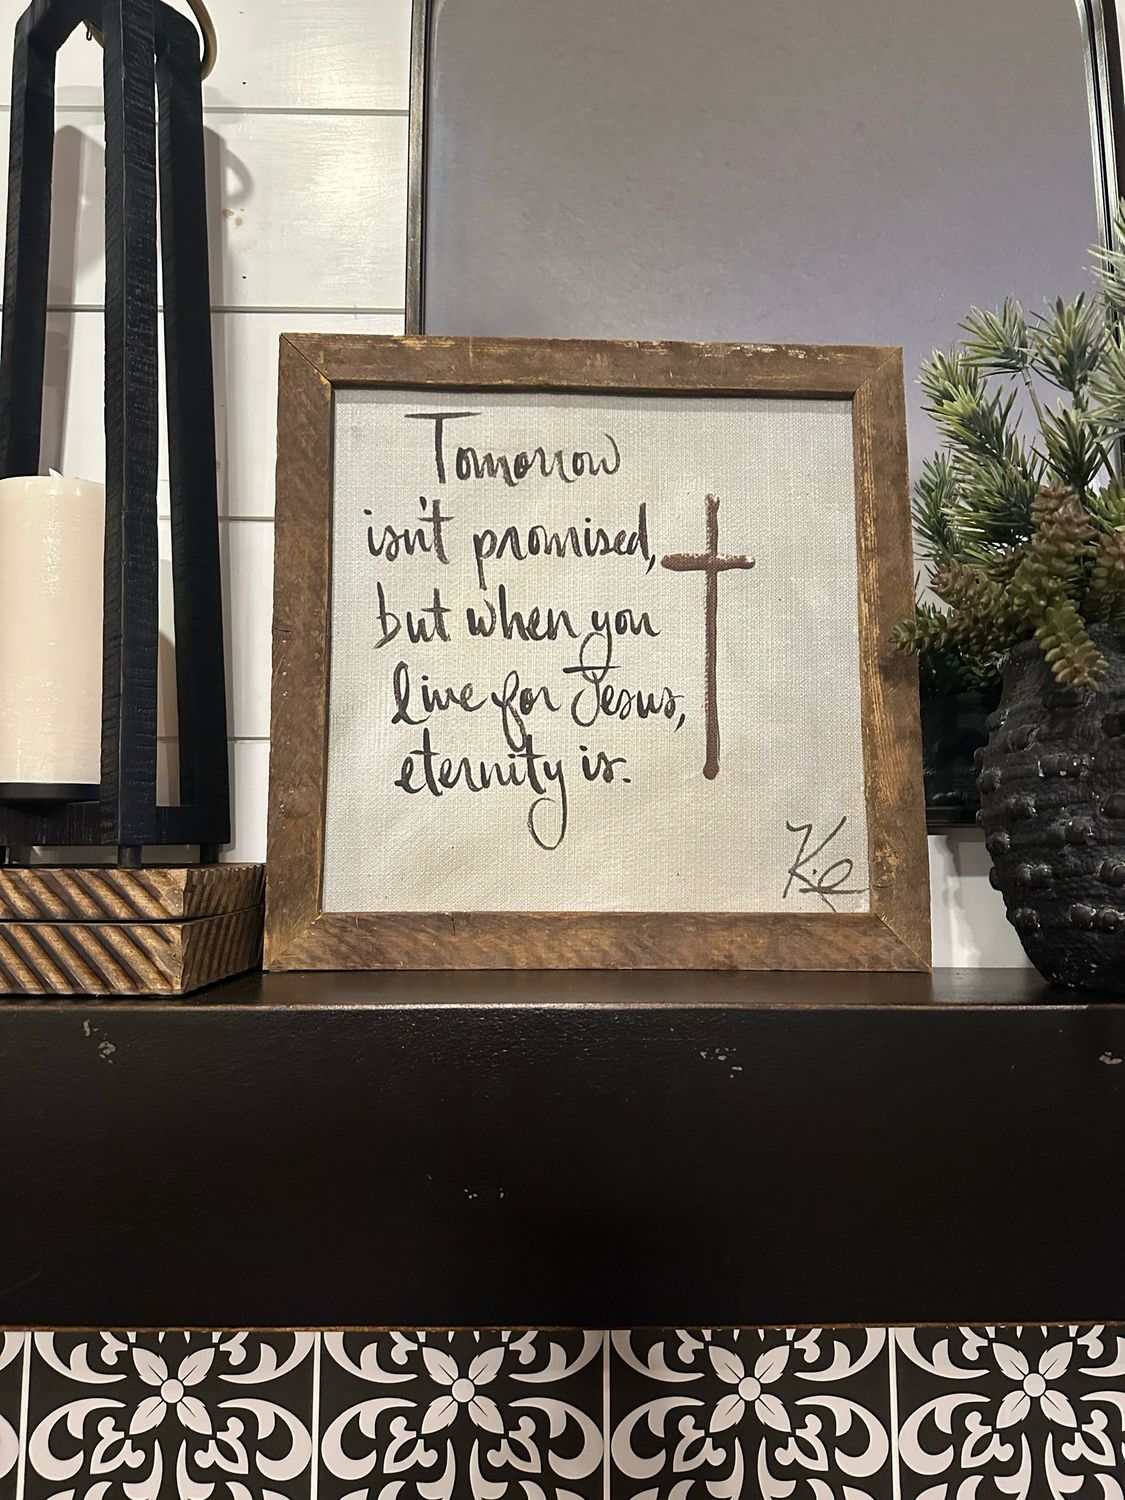 Tomorrow
isn't promised,
but when you
live for Jesus,
eternity is.